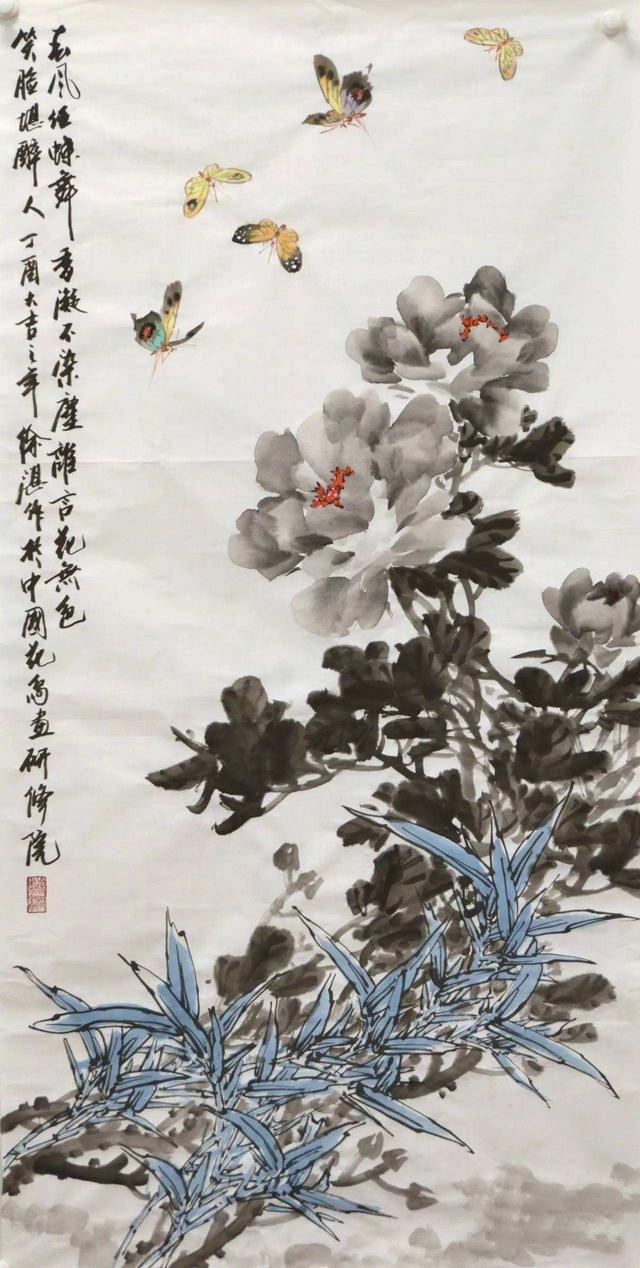 春风任蝶舞香凝不染塵誰言花無色
笑脸堪醉人丁酉大吉之年徐湛作於中國花鸟畫研修院